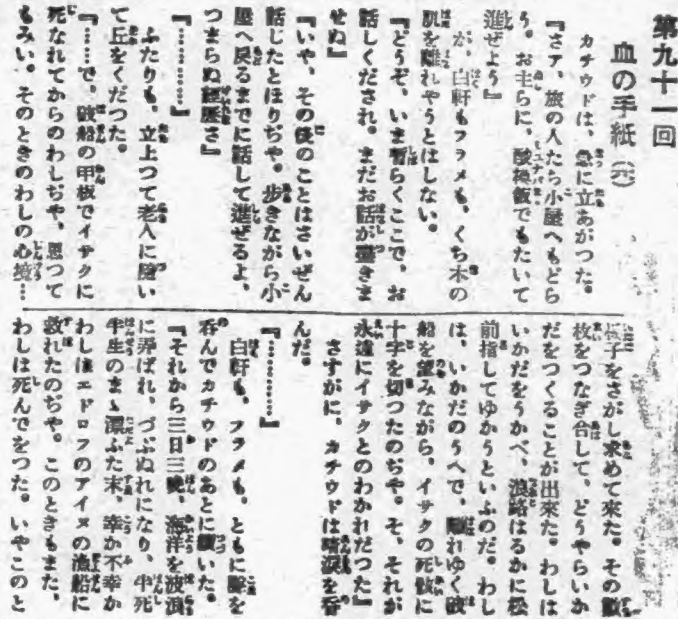 第九十一回
血の手紙 (六)
カチウドは、急に立あがつた。
『さア、旅の人たち小屋へもどら
う。お主らに、酸模飯でもたいて
進ぜよう』
が、白軒もフラメも、くち木の
肌を離れやうとはしない。
『どうぞ、いま暫らくここで、お
話しくだされ。まだお話が盡きま
せぬ』
『いや、その後のことはさいぜん
話じたとほりぢや。歩きながら小
屋へ戻るまでに話して進ぜるよ、
つまらぬ經歴さ』
『…………』
ふたりも、立上つて老人に随い
て丘をくだつた。
『……で、破船の甲板でイサクに
死なれてからのわしぢや、思つて
もみい。そのときのわしの心境…
板子をさがし求めて來た。その數
枚をつなぎ合して、どうやらいか
だをつくることが出來た。わしは
いかだをうかべ、浪路はるかに松
前指してゆかうといふのだ。わし
は、いかだのうへで、離れゆく破
船を望みながら、イサクの死骸に
十字を切つたのぢや。そ、それが
永遠にイサクとのわかれだつた』
さすがに、カチウドは暗涙を呑
んだ。
『…………』
白軒も、フラメも、ともに聲を
呑んでカチウドのあとに續いた。
『それから三日三晩、海洋を波浪
に弄ばれ、づぶぬれになり、半死
半生のまゝ漂ふた末、幸か不幸か
わしはエドロフのアイヌの漁船に
救れたのぢや。このときもまた、
わしは死んでをつた。いやこのと